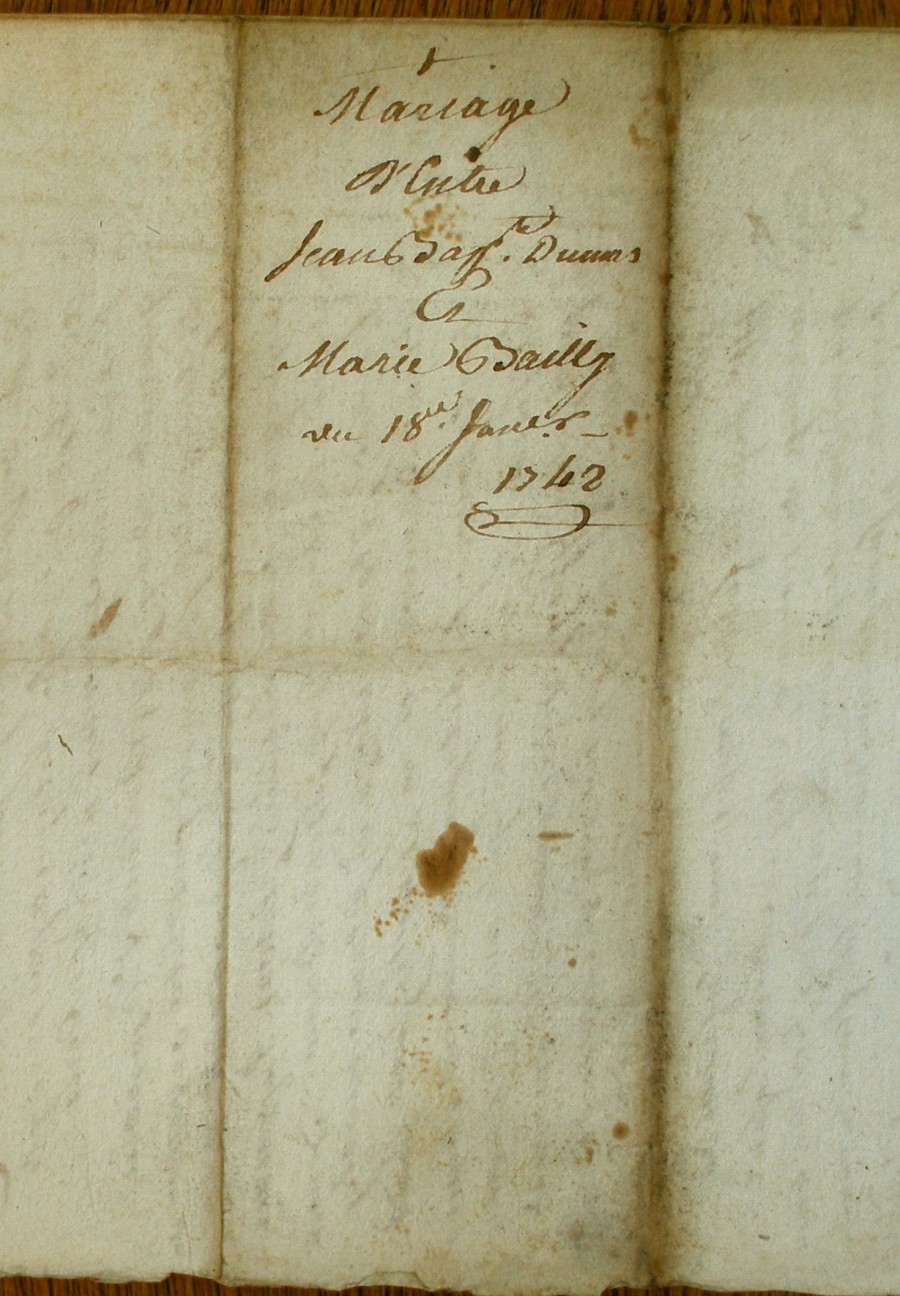 Mariage
D'Entre
Jean Bapte. Dumas
Et
Marie Bailly
du 18me. Janer.
1742